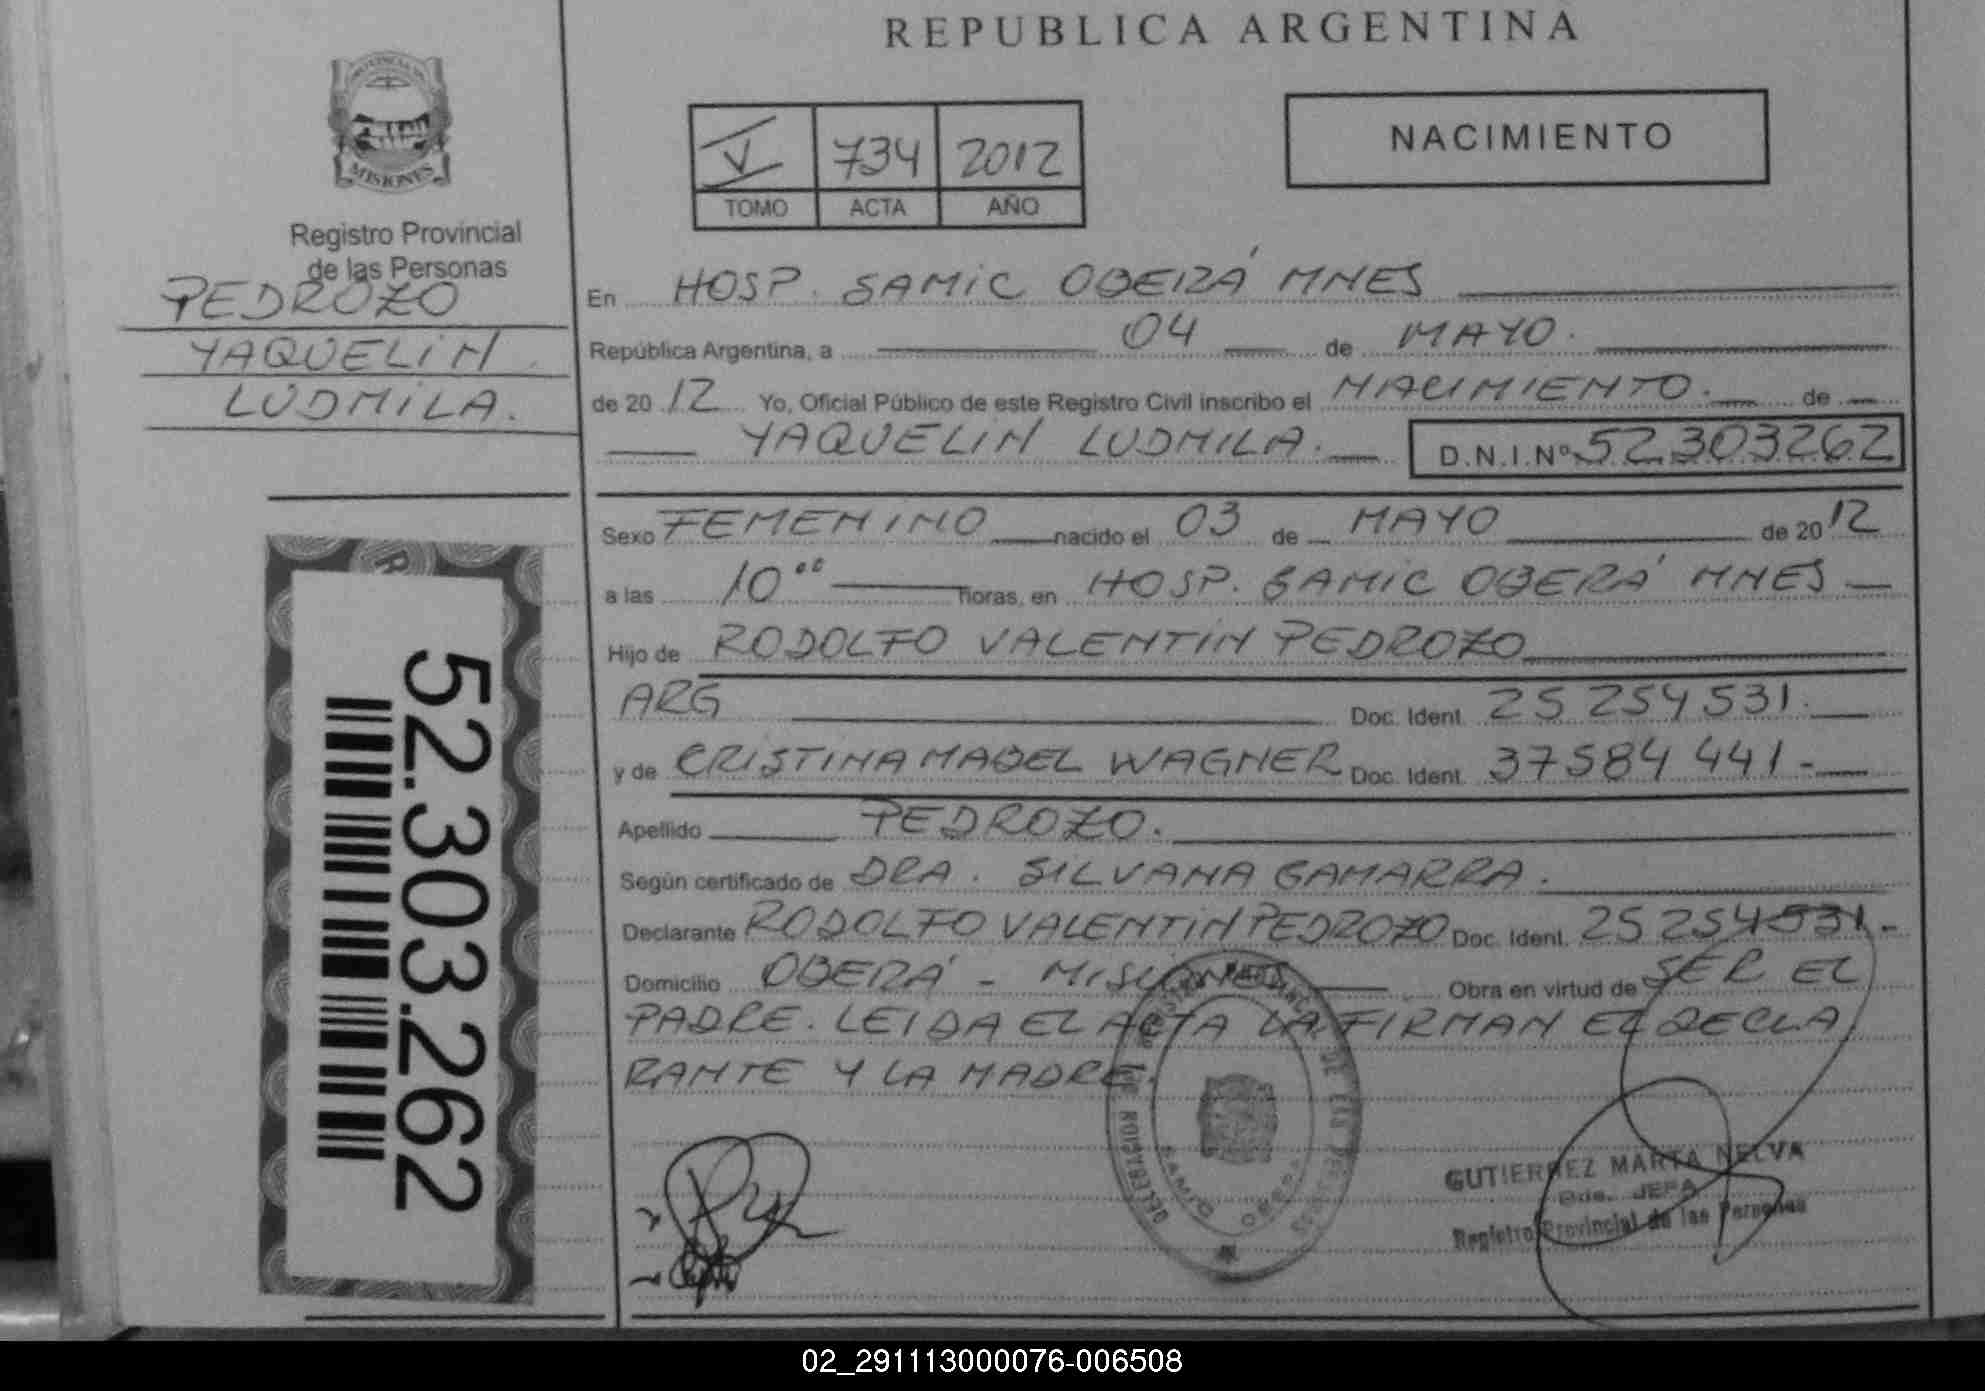 REPUBLICA ARGENTINA
PROVINCIA DE
MISIONES
Registro Provincial
de las Personas
PEDROZO
YAQUELIN
LUDMILA.
V 734 2012
TOMO ACTA AÑO
NACIMIENTO
En HOSP. SAMIC OBERÁ MNES
República Argentina, a 04 de MAYO.
de 2012 Yo, Oficial Público de este Registro Civil inscribo el NACIMIENTO. de
YAQUELIN LUDMILA. D.N.I.Nº 52.303262
Sexo FEMENINO nacido el 03 de MAYO de 2012
a las 10°° horas, en HOSP. SAMIC OBERÁ MNES
Hijo de RODOLFO VALENTIN PEDROZO
ARG Doc. Ident. 25 254 531.
y de CRISTINA MABEL WAGNER Doc. Ident. 37584 441.-
Apellido PEDROZO.
Según certificado de DRA. SILVANA GAMARRA.
Declarante RODOLFO VALENTIN PEDROZO Doc. Ident. 25 254 531.-
Domicilio OBERÁ - MISIONES Obra en virtud de SER EL
PADRE. LEIDA EL ACTA LA FIRMAN EL DECLA
RANTE Y LA MADRE.
52.303.262
GUTIERREZ MARTA NELVA
JEFA
Registro Provincial de las Personas
02_291113000076-006508